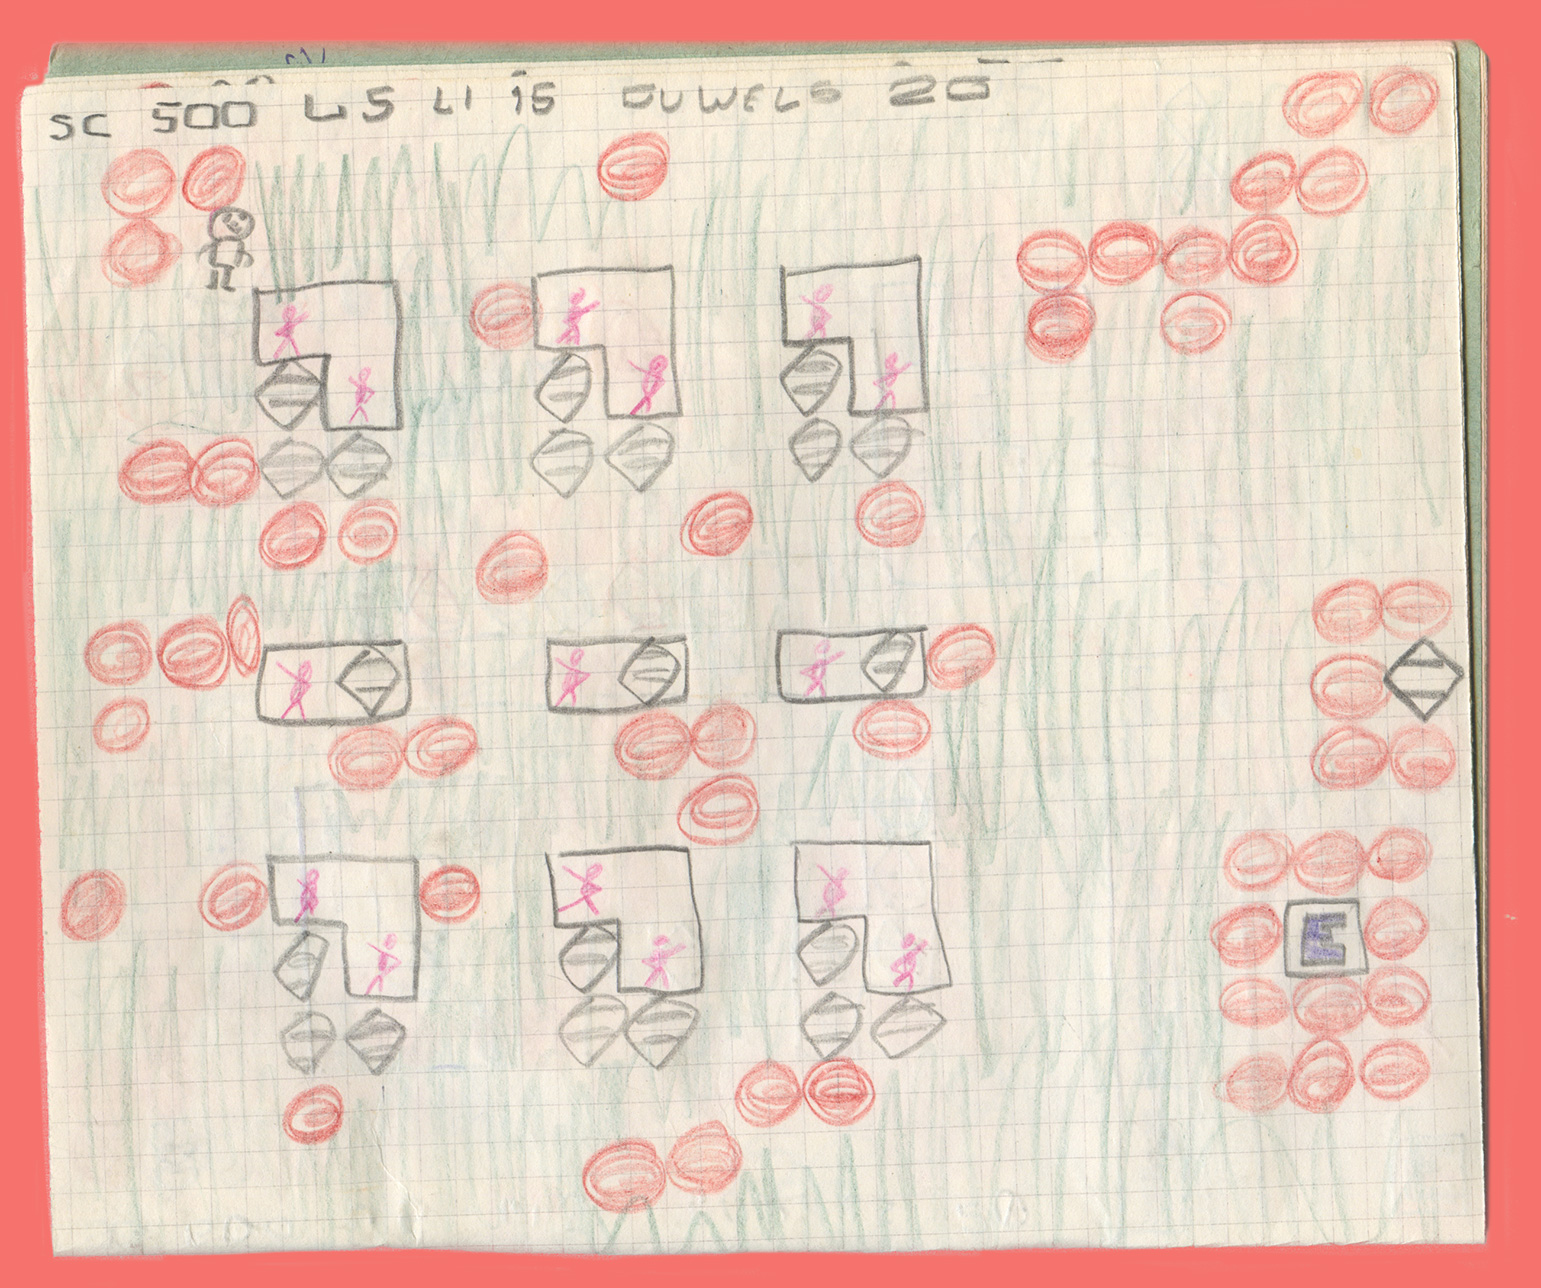 SC 500 L5 LI 15 OUWELS 20
E